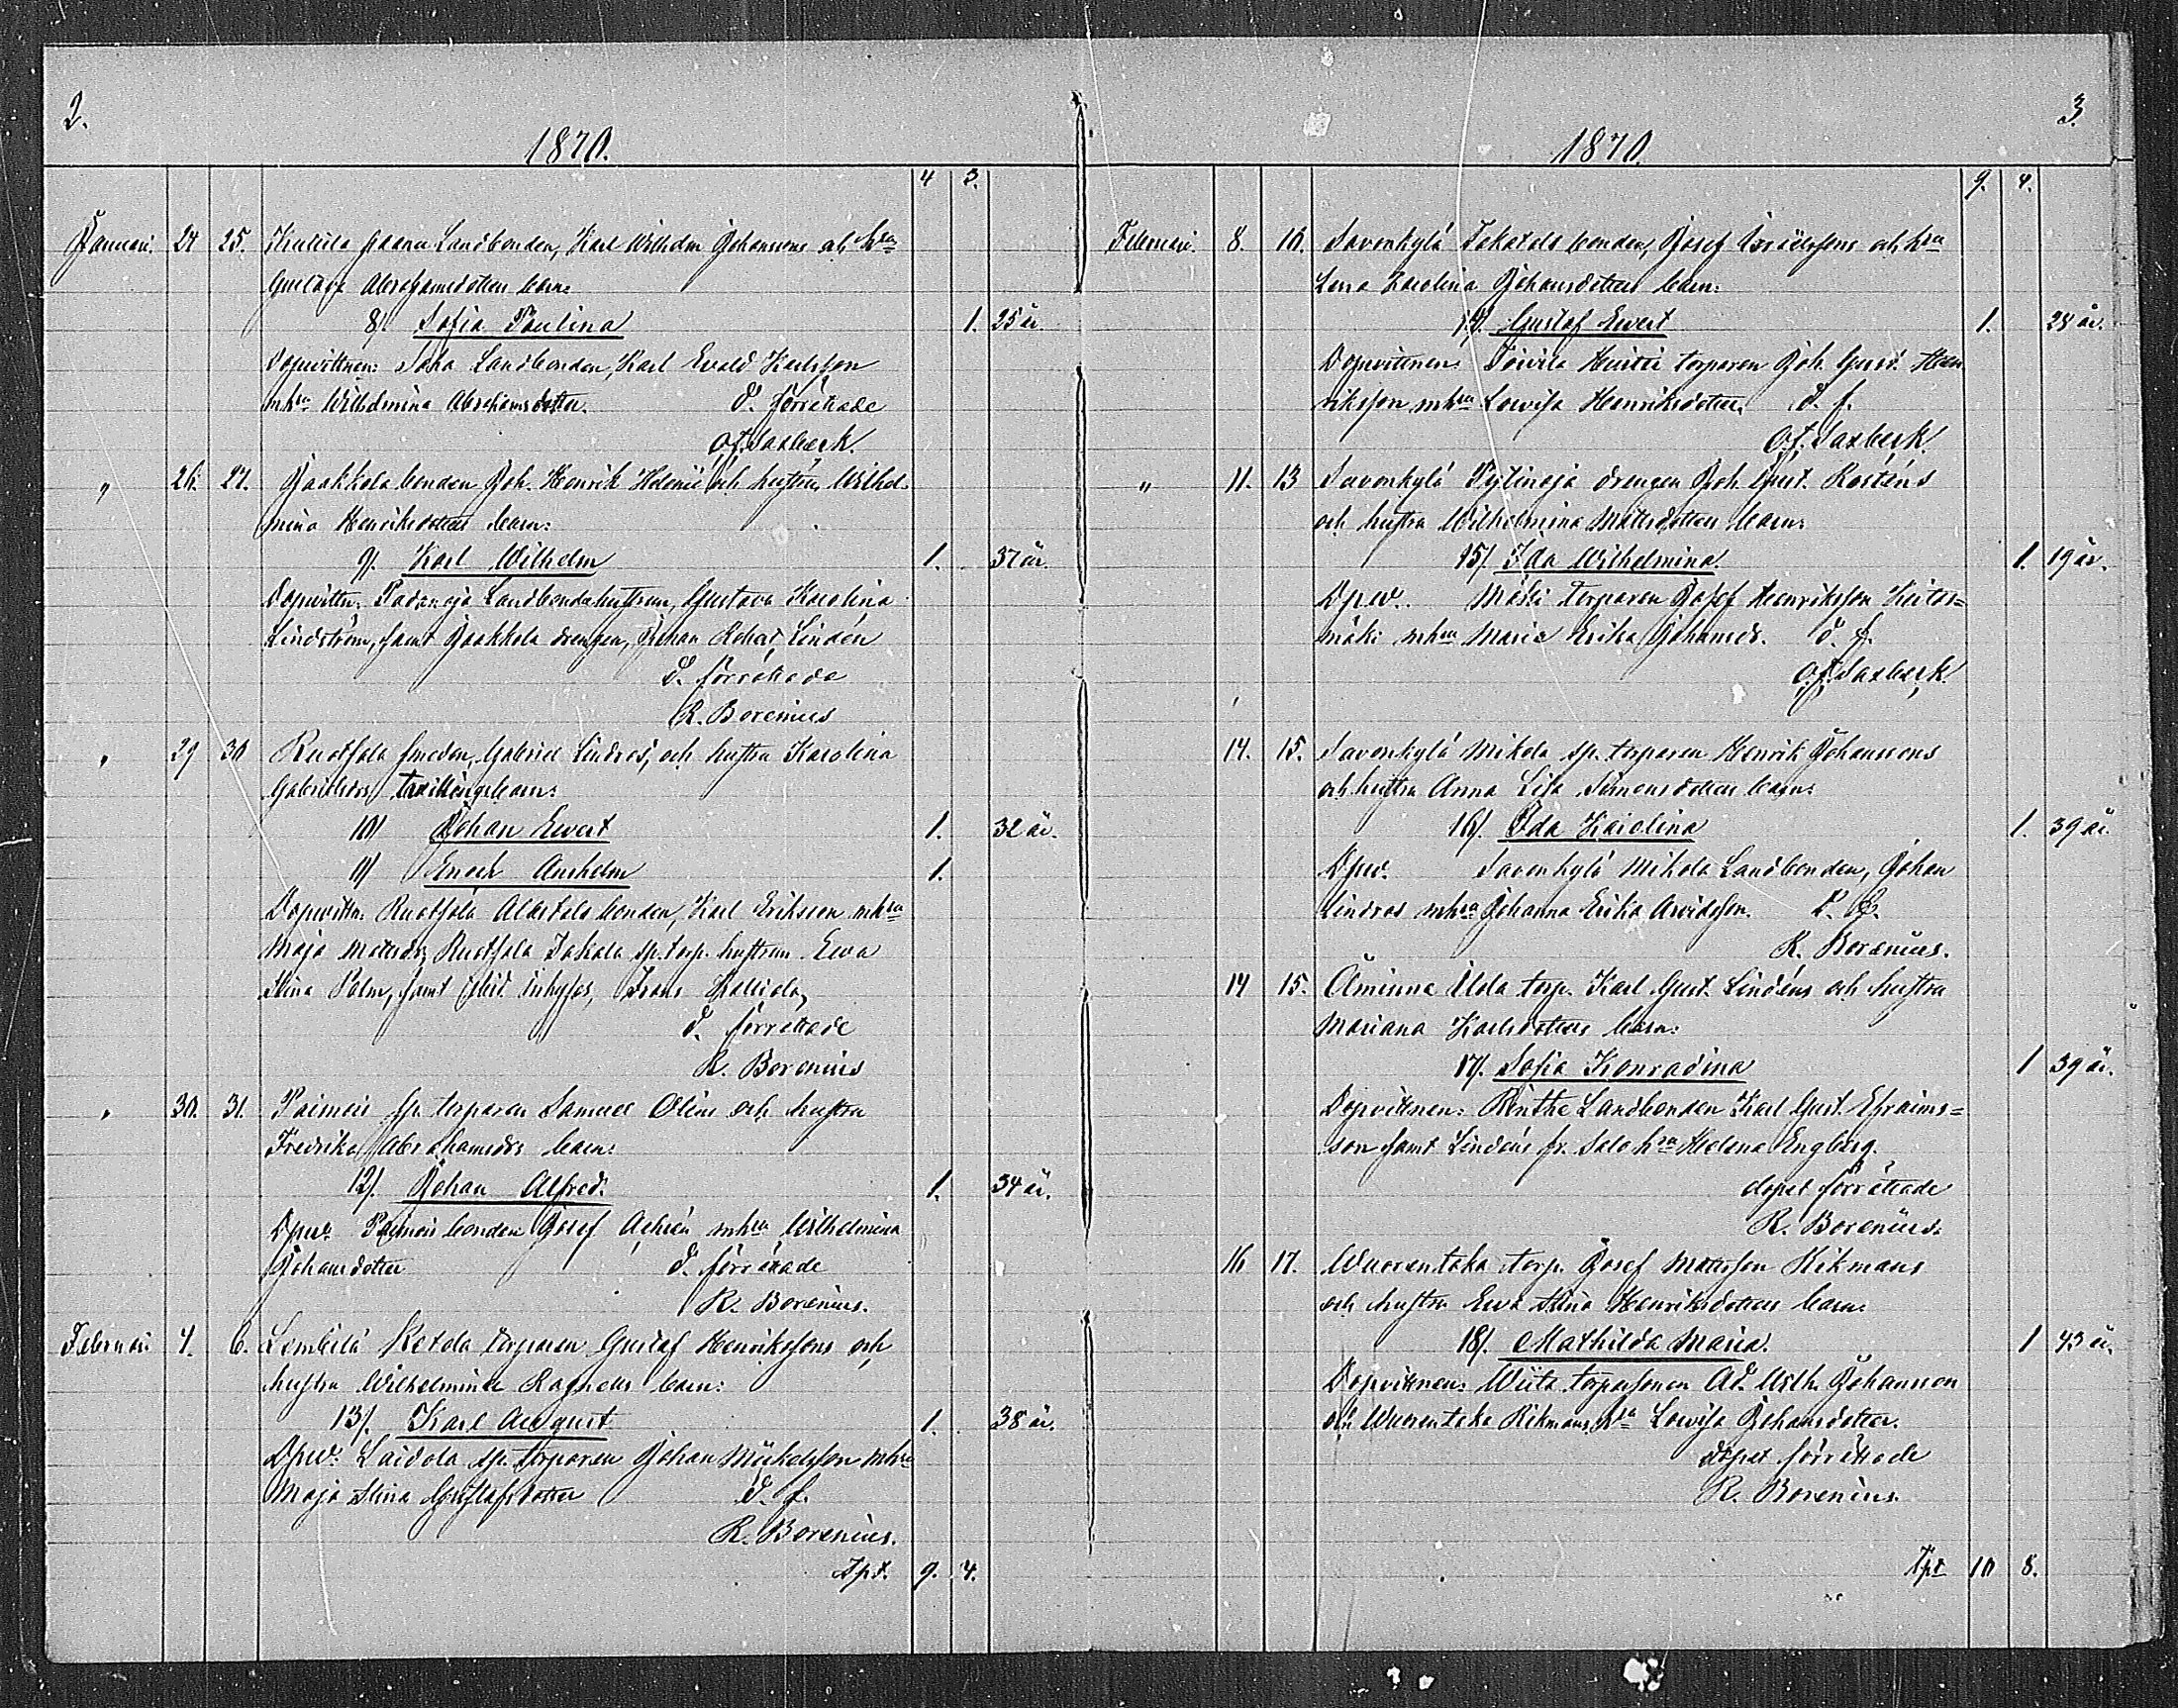 2.
1870.
4 3.
Januari. 24 25. Landbonden, Karl Wilhelm Johanssons och hru
Gustava Abrahamsdotters barn:
8/ Sofia Paulina 1. 25 år
Dopvittnen: Landbonden, Karl Evald Karlsson
mhru Wilhelmina Abrahamsdotter. d. förrättade
O.f. Saxbeck.
" 26. 27. Jaakkola bonden Joh. Henrik och hustrus Wilhel-
mina Henriksdotters barn:
9/. Karl Wilhelm 1. 37 år.
Dopvittn: Landbondehustrun, Gustava Karolina
Lindström, samt Jaakkola drengen, Johan Lindén
d. förrättade
R. Borenius
" 29 30 Ruotsala smeden, Gabriel Lindros, och hustru Karolina
Gabrielsdrs tvillingebarn:
10/ Johan Evert 1. 32 år.
11/ Enoch Anshelm 1.
Dopvittn: Ruotsala bonden, Karl Eriksson mhru
Maja Mattsdr, Ruotsala sp. torp. hustrun Eva
Stina Palm, samt inhyses, Frans
d. förrättade
R. Borenius
" 30. 31. Paimois sp. torparen Samuel Olins och hustru
Fredrika Abrahamsdrs barn:
12/. Johan Alfred. 1. 34 år.
Dpv: Paimois bonden Josef mhru Wilhelmina
Johansdotter d. förrättade
R. Borenius.
Februari 4. 6. torparen Gustaf Henrikssons och
hustru Wilhelmina barn:
13/. Karl August 1. 38 år.
Dpv: Laidola sp. torparen Johan Mickelsson mhru
Maja Stina Gustafsdotter d. f.
R. Borenius.
Tpt. 9. 4.
3.
1870.
9. 4.
Februari. 8. 10. Savonkylä bonden, Josef Israelssons och hru
Lena Karolina Johansdotters barn:
14/. Gustaf Evert 1. 28 år.
Dopvittnen: torparen Joh. Gust. Hen
riksson mhru Lovisa Henriksdotter. d. f.
O.f. Saxbeck.
" 11. 13 Savonkylä drengen Joh. Gust. Rosténs
och hustru Wilhelmina Mattsdotters barn:
15/. Ida Wilhelmina. 1. 19 år.
Dpv. Mäki torparen Josef Henriksson
mäki mhru Maria Erika Johansdr. d. f.
O.f. Saxbeck.
14. 15. Savonkylä Mikola sp. torparen Henrik Johanssons
och hustru Anna Lisa Simonsdotters barn:
16/. Ida Karolina 1. 39 år.
Dpv. Savonkylä Mikola Landbonden, Johan
Lindros mhru Johanna Erika Arvidsson. D. f.
R. Borenius.
14 15. Åminne Ulda torp. Karl Gust. Lindéns och hustru
Mariana Karlsdotters barn:
17/. Sofia Konradina 1 39 år.
Dopvittnen: Landbonden Karl Gust. Efraims=
son samt Lindéns fr. Salo hru Helena Engberg.
dopet förrättade
R. Borenius.
16 17. Wuorentaka torp. Josef Mattsson Hikmans
och hustru Eva Stina Henriksdotters barn:
18/. Mathilda Maria. 1 43 år.
Dopvittnen: Wiita torparsonen Ad. Wilh. Johansson
och Wuorentaka Hikmans hru Lovisa Johansdotter.
dopet förrättade
R. Borenius.
Tpt 10 8.